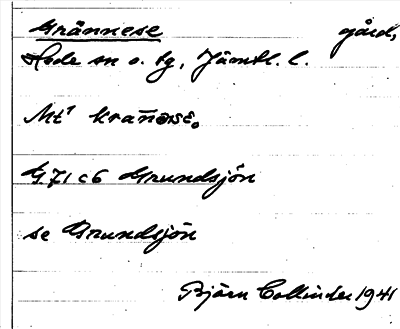 Grännese gård,
Hede sn o. tg, Jämtl. l.
Mt¹
G.71 c6 Grundsjön
se Grundsjön
Björn Collinder 1941